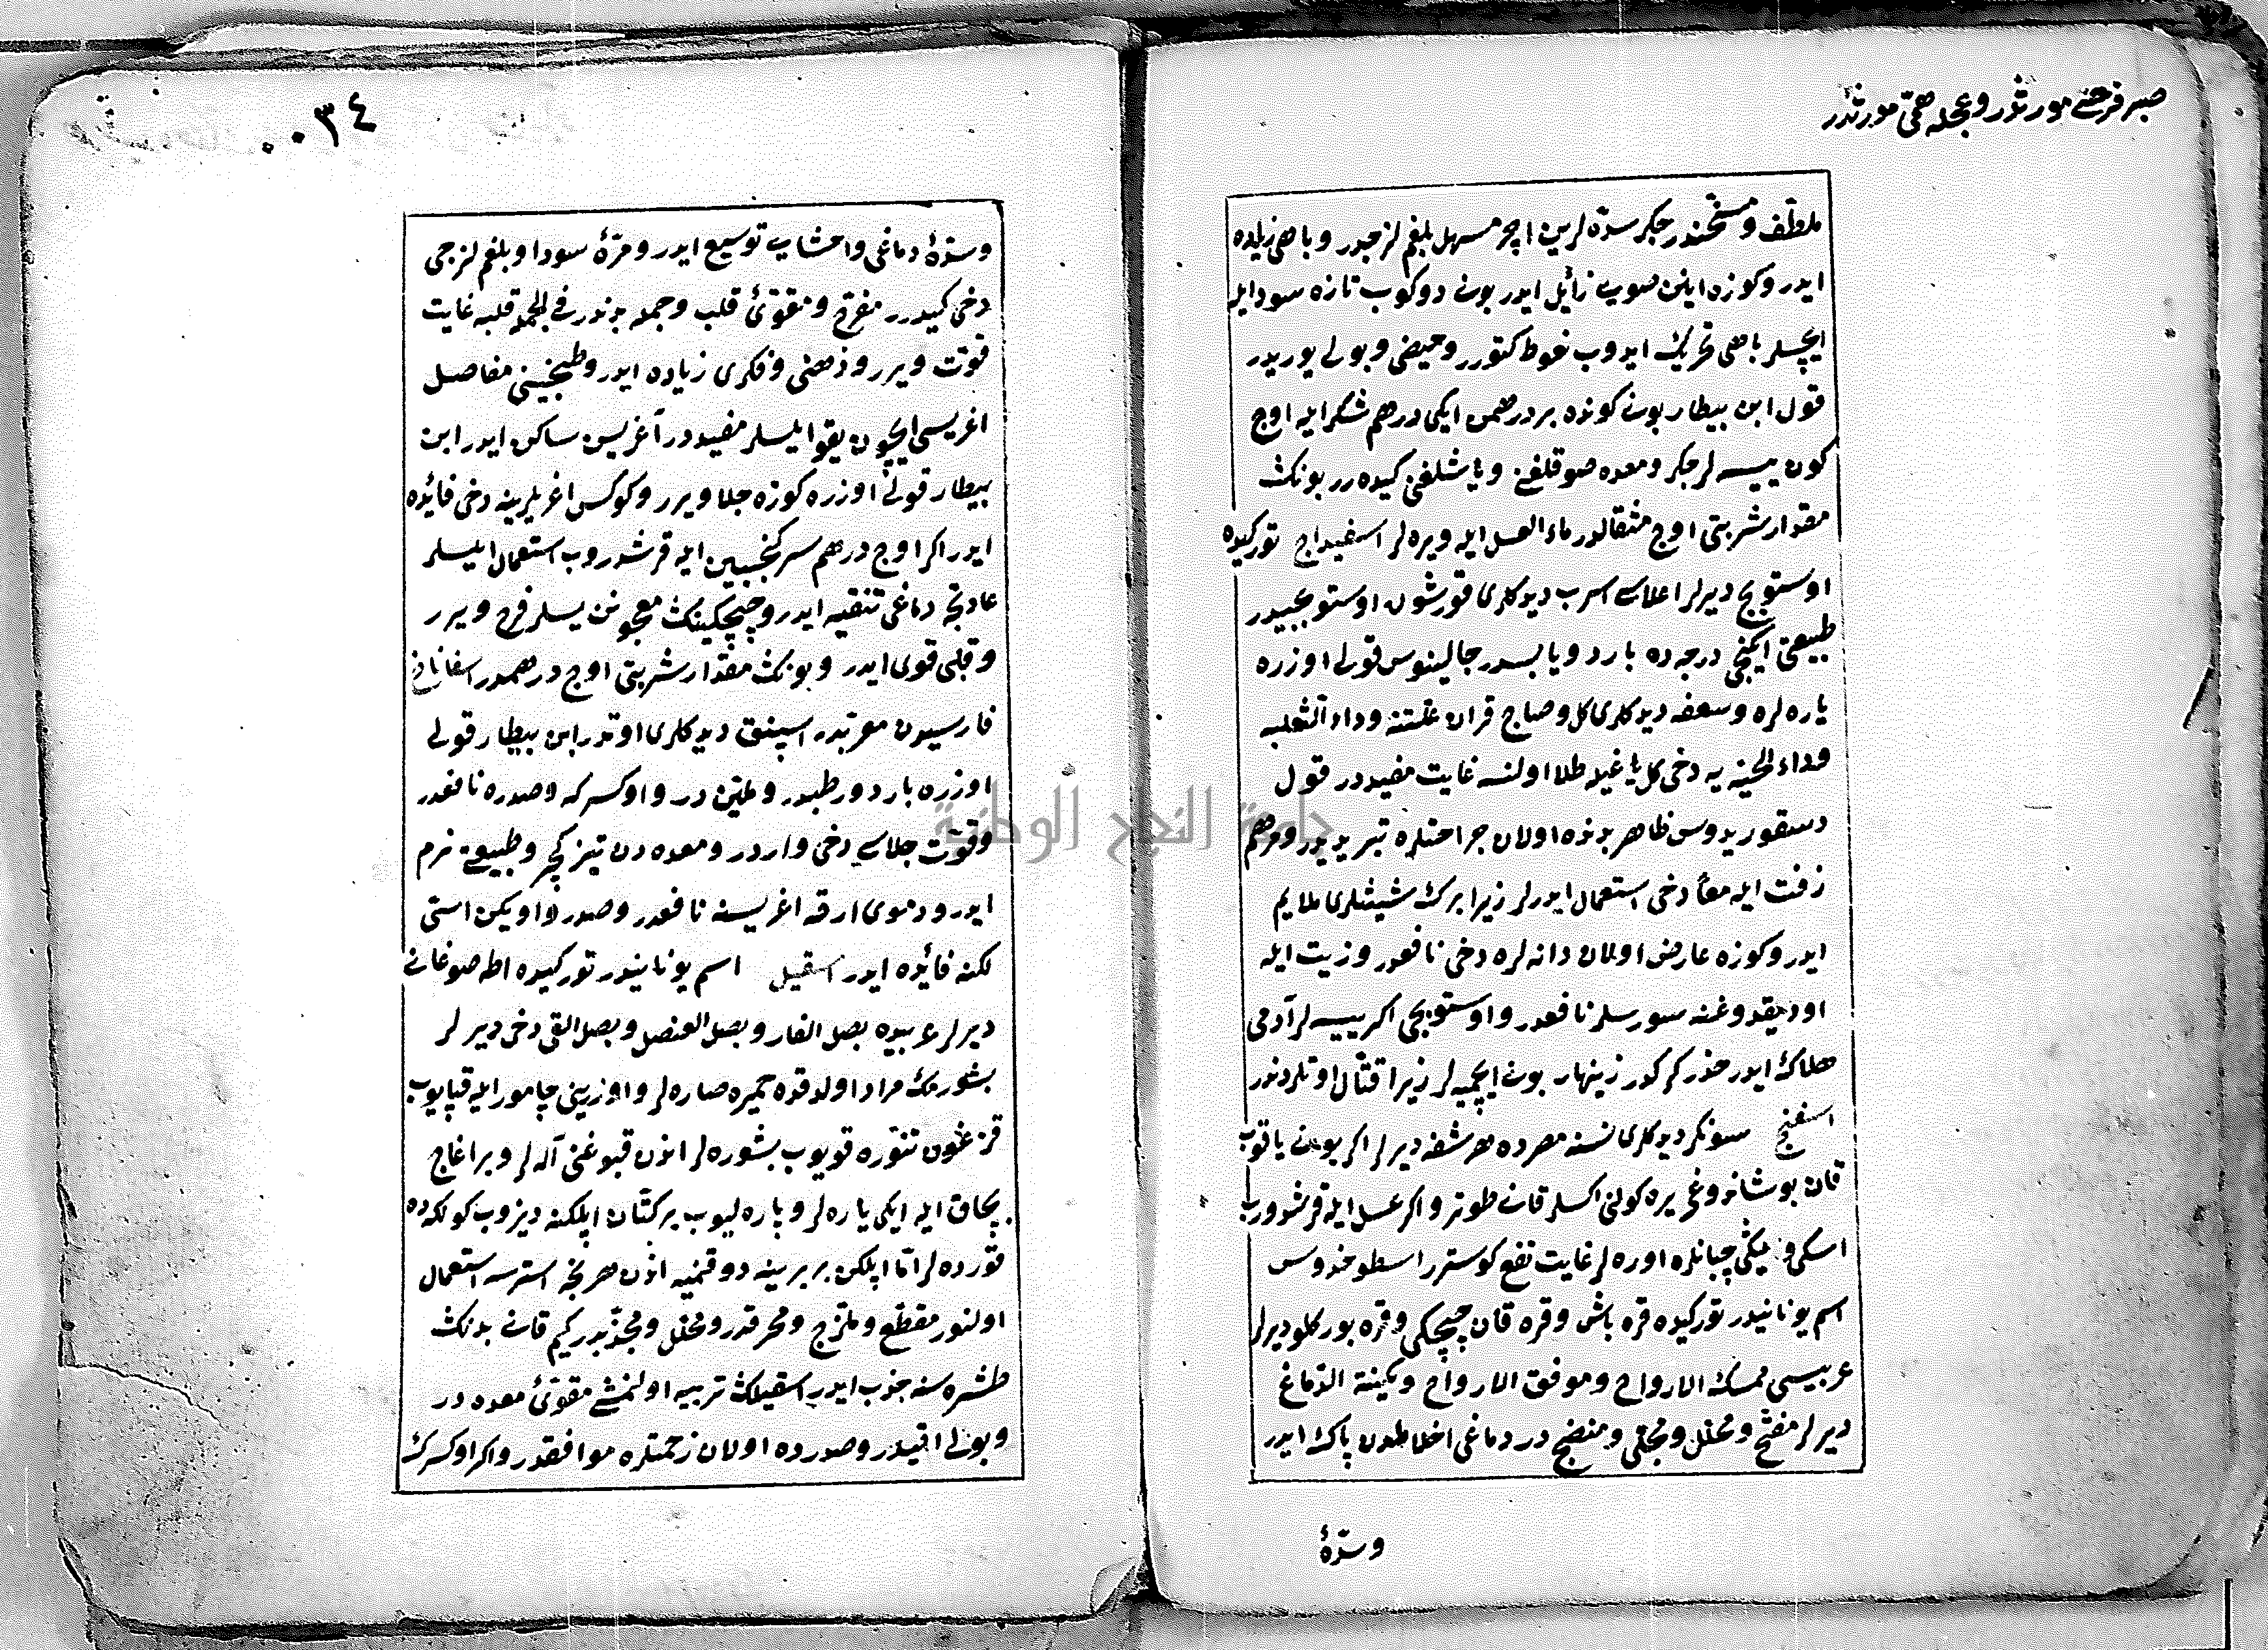 صبر فرحنے مورثدر و عجله همّی مورثدر
ملطّف و مسخّندر جكر سدّه لرین اچر مسهل بلغم لزجدر و باهی زیاده
ایدر و كوزه اینن صویی زائل ایدر بونی دوكوب تازه سود ایله
ایچسلر باهی تحریك ایدوب نعوظ كتورر و حیضی و بولی یوریدر
قول ابن بیطار بونی كونده بر درهمن ایكی درهم شكر ایله اوچ
كون ییسه لر جكر و معده صوقلغن و یاشلغن كیده رر بونك
مقدار شربتی اوچ مثقالدر ماء العسل ایله ویره لر اسفیداج توركیده
اوستوبج دیرلر اعلاسی اسرب دیدكلری قورشون اوستوبجیدر
طبیعتی ایكنجی درجه ده بارد و یابسدر جالینوس قولی اوزره
یاره لره و سعفه دیدكلری كل و صاچ قران علتنه و داء الثعلبه
و داء الحیّه یه دخی كل یاغیله طلا اولنسه غایت مفیددر قول
دسقوریدوس ظاهر بدنده اولان جراحتلره تبرید ایدر و مرهم
زفت ایله معاً دخی استعمال ایدرلر زیرا برك شیشلری ملایم
ایدر و كوزه عارض اولان دانه لره دخی نافعدر و زیت ایله
اود یقدوغنه سورسلر نافعدر و اوستوبجی اكر ییسه لر آدمی
هلاك ایدر حذر كركدر زینهار بونی ایچمیه لر زیرا قتّال اوتلردندر
اسفنج سونكر دیدكلری نسنه مصرده هرشفه دیرلر اكر بونی یاقوب
قان بوشاندوغی یره كولنی اكسلر قانی طوتر و اكر عسل ایله قرشدورب
اسكی و یكی چبانلره اوره لر غایت نفع كوسترر اسطوخدوس
اسم یونانیدر توركیده قره باش و قره قان چیچكی و قره بوركلو دیرلر
عربیسی ممسك الارواح و موفق الارواح و مكینة الدّماغ
دیرلر مفتّح و محلّل و مجلّی و منضج در دماغی اخلاطدن پاك ایدر
و سدّهٔ
٠٠٣٤
و سدّهٔ دماغی و احشایی توسیع ایدر و مرّهٔ سودا و بلغم لزجی
دخی كیدرر مفرّح و مقوّئ قلب و جمله بدندر فی الجمله قلبه غایت
قوّت ویرر و ذهنی و فكری زیاده ایدر و طبخینی مفاصل
اغریسی ایچون یقو ایلسلر مفیددر آغریسن ساكن ایدر ابن
بیطار قولی اوزره كوزه جلا ویرر و كوكس اغریلرینه دخی فائده
ایدر اكر اوچ درهم سركنجبین ایله قرشدروب استعمال ایلسلر
عادتجه دماغی تنقیه ایدر و چیچكینك معجونن یسلر فرح ویرر
و قلبی قوی ایدر و بونك مقدار شربتی اوچ درهمدر اسفاناخ
فارسیدن معربدر اسپنق دیدكلری اوتدر ابن بیطار قولی
اوزره بارد و رطبدر و ملیّن در و اوكسركه و صدره نافعدر
و قوّت جلاسی دخی واردر و معده دن تیز كچر و طبیعتی نرم
ایدر و دموی ارقه اغریسنه نافعدر و صدر و اویكن استی
لكنه فائده ایدر اسقیل اسم یونانیدر توركیده اطه صوغانی
دیرلر عربیده بصل الفار و بصل العنصل و بصل القی دخی دیرلر
بشورمك مراد اولدقده خمیره صاره لر و اوزرینی چامور ایله قپایوب
قزغون تنّوره قویوب بشوره لر اندن قبوغنی آله لر و بر اغاج
بچاق ایله ایكی یاره لر و پاره لیوب بر كتّان اپلكنه دیزوب كولكه ده
قورده لر امّا اپلكن بربرینه دوقنمیه اندن هر نجه استرسه استعمال
اولنور مقطّع و ملزج و محرقدر و محلّل و مجذّبدر كیم قانی بدنك
طشره سنه جذب ایدر اسقیلك تربیه اولنمشی مقوّئ معده در
و بولی اقیدر و صدرده اولان زحمتلره موافقدر و اكر اوكسرك